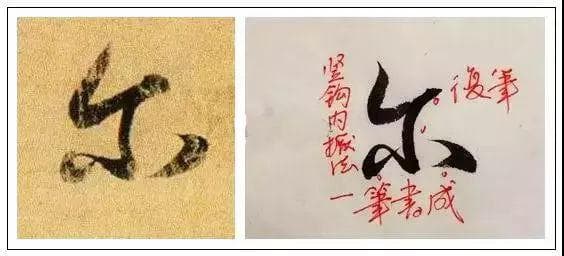 尔
尔
竖钩内擫法
復筆
一筆書成